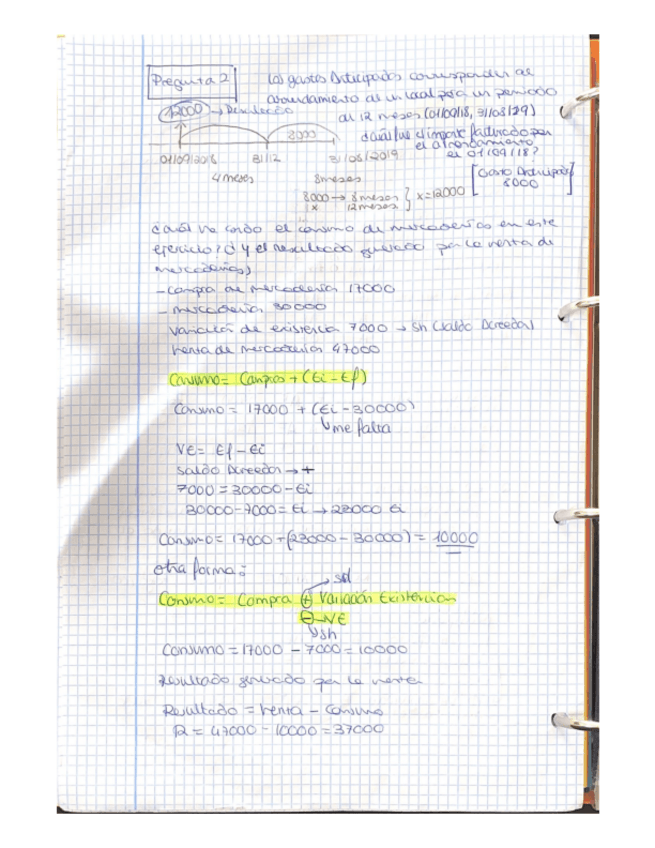 Pregunta 2
Los gastos Anticipados corresponden al
arrendamiento de un local para un periodo
de 12 meses (01/09/18, 31/08/29)
12000 → Devolución
¿Cuál fue el importe facturado por
el arrendamiento
el 01/09/18?
8000
01/09/2018 31/12 31/08/2019
4 meses 8 meses
[Gasto Anticipado
8000]
8000 → 8 meses } x=12000
x 12 meses
¿Cuál ha sido el consumo de mercaderías en este
ejercicio? ¿y el resultado generado por la venta de
mercaderías?
- Compra de mercadería 17000
- mercadería 30000
Variación de existencia 7000 → Sh (Saldo Acreedor)
Venta de mercadería 47000
Consumo = Compras + (Ei - Ef)
Consumo = 17000 + (Ei - 30000)
↳ me falta
VE = Ef - Ei
Saldo Acreedor → +
7000 = 30000 - Ei
30000 - 7000 = Ei → 23000 Ei
Consumo = 17000 + (23000 - 30000) = 10000
otra forma:
→ sd
Consumo = Compra ⊕ Variación Existencias
⊖ VE
↳ Sh
Consumo = 17000 - 7000 = 10000
Resultado generado por la venta
Resultado = Venta - Consumo
R = 47000 - 10000 = 37000